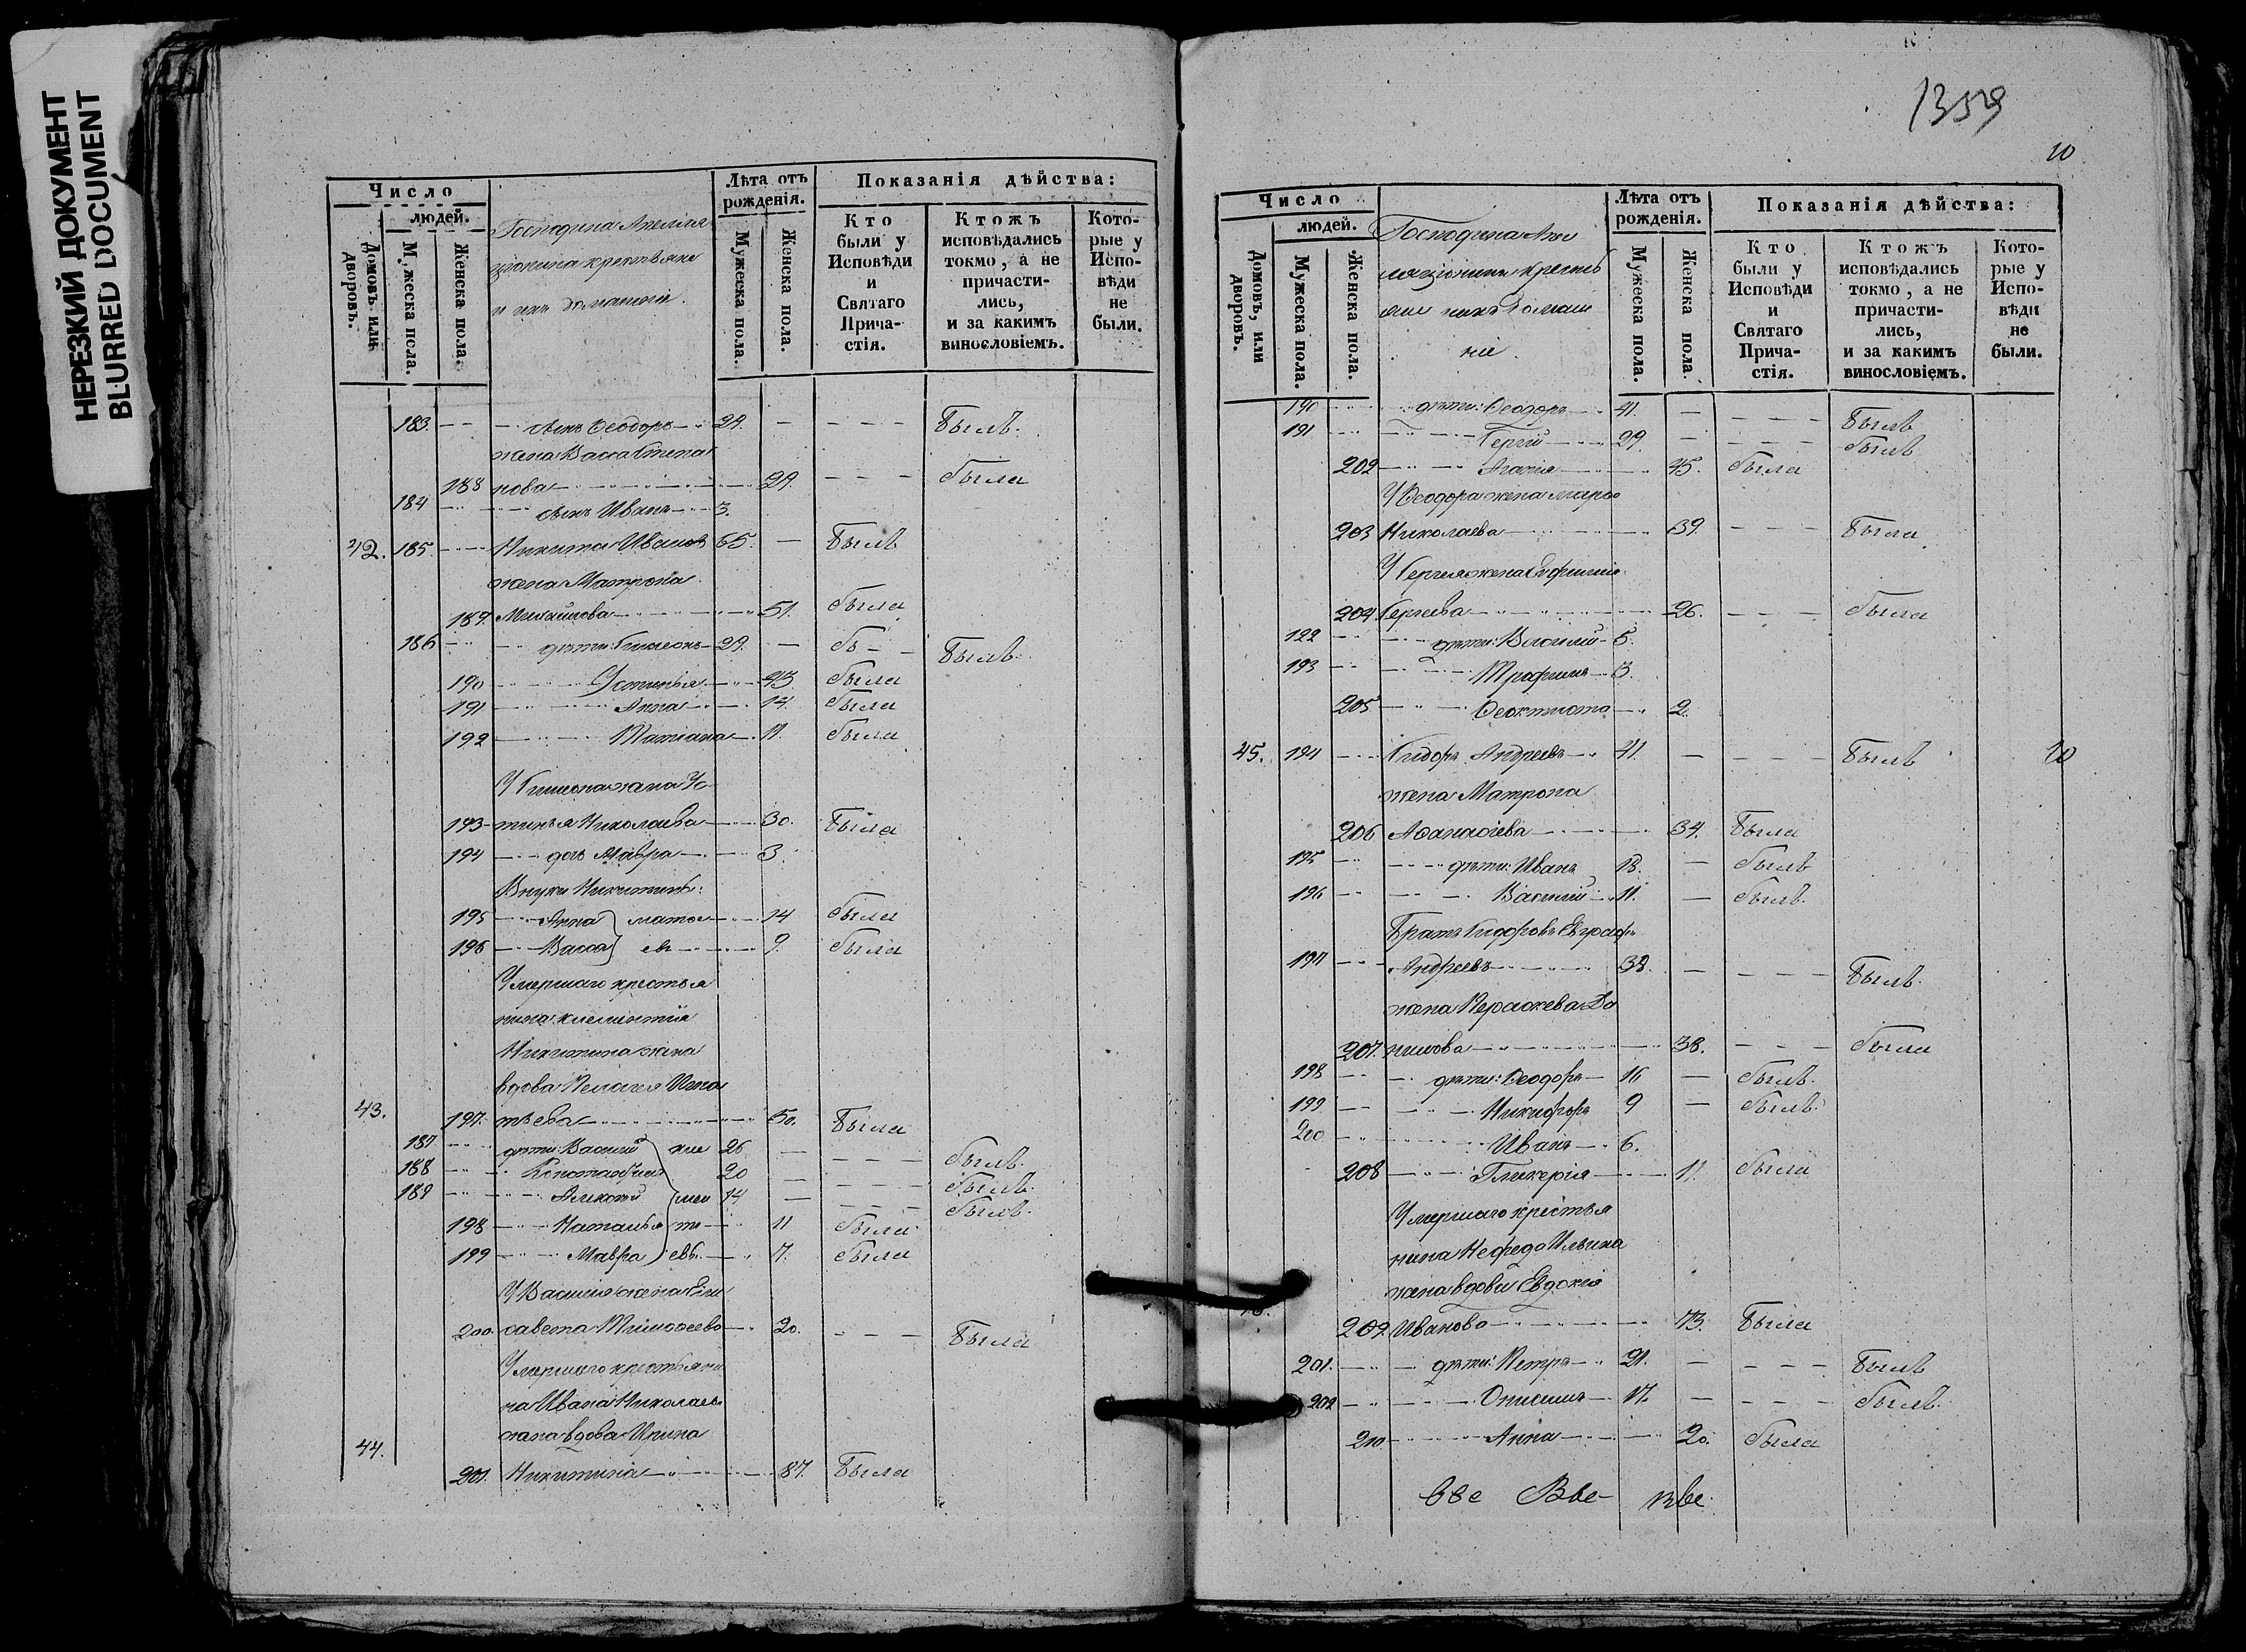 НЕРЕЗКИЙ ДОКУМЕНТ
BLURRED DOCUMENT
Число
людей.
Домовъ или дворовъ.
Мужеска пола.
Женска пола.
Господина
крестьяне
и ихъ домашніе.
Лѣта отъ рожденія.
Мужеска пола.
Женска пола.
Показанія дѣйства:
Кто были у Исповѣди и Святаго Прича-стія.
Ктожъ исповѣдались токмо, а не причасти-лись, и за какимъ винословіемъ.
Кото-рые у Испо-вѣди не были.
183. сынъ Ѳеодоръ 24. Былъ.
жена Васса Степа
188 нова 24. была
184 сынъ Иванъ 3.
42. 185. Никита Ивановъ 65. Былъ
жена Матрона
189. Михайлова 51. была
186 дѣти: Симеонъ 29. Былъ.
190 Устинья 23 была
191 Анна 14. была
192 Татіана 11. была
У Симеона жена Ус
193 тинья Николаева 30. Была
194 дочь Мавра 3.
Внуки Никитины:
195 Анна 14 была
196 Васса 9. была
Умершаго крестья
нина Климентія
Никитина жена
вдова Пелагея Игна
43. 197. тьева 50. Была
187 дѣти: Василій 26 былъ.
188 Константинъ 20 былъ.
189 Алексѣй 14 былъ.
198 Наталья 11 была
199 Мавра 7. была
кли
мен
ть
евы
У Василія жена Ели
200. савета Тимоѳеева 20. Была
Умершаго крестьяни
на Ивана Николаева
жена вдова Ирина
44.
201. Никитина 87. Была
1359
20
Число
людей.
Домовъ, или дворовъ.
Мужеска пола.
Женска пола.
Господина
крестья
не и ихъ домаш
ніе.
Лѣта отъ рожденія.
Мужеска пола.
Женска пола.
Показанія дѣйства:
Кто были у Исповѣди и Святаго Прича-стія.
Ктожъ исповѣдались токмо, а не причасти-лись, и за какимъ винословіемъ.
Кото-рые у Испо-вѣди не были.
190 дѣти: Ѳеодоръ 41. Былъ
191 Сергій 29. былъ
202 Агафія 45. была
У Ѳеодора жена Марѳа
203 Николаева 39. Была
У Сергія жена Евфимія
204. Сергеева 26. была
192 дѣти: Василій 5.
193 Трофимъ 3.
205 Ѳеоктиста 2.
45. 194 Сидоръ Андреевъ 41. Былъ 20
жена Матрона
206 Аѳанасіева 34. Была
195 дѣти: Иванъ 13. былъ
196 Василій 11. былъ.
Братъ Сидоровъ Евграфъ
197 Андреевъ 38. Былъ.
жена Параскева Да
207. нилова 38. была
198 дѣти: Ѳеодоръ 16 былъ.
199 Никифоръ 9 былъ.
200 Иванъ 6.
208 Гликерія 11. была
Умершаго крестья
нина Нефеда Ильина
жена вдова Евдокія
209. Иванова 73. Была
201. дѣти: Петръ 21. Былъ
202 Онисимъ 17. былъ.
210 Анна 20. была